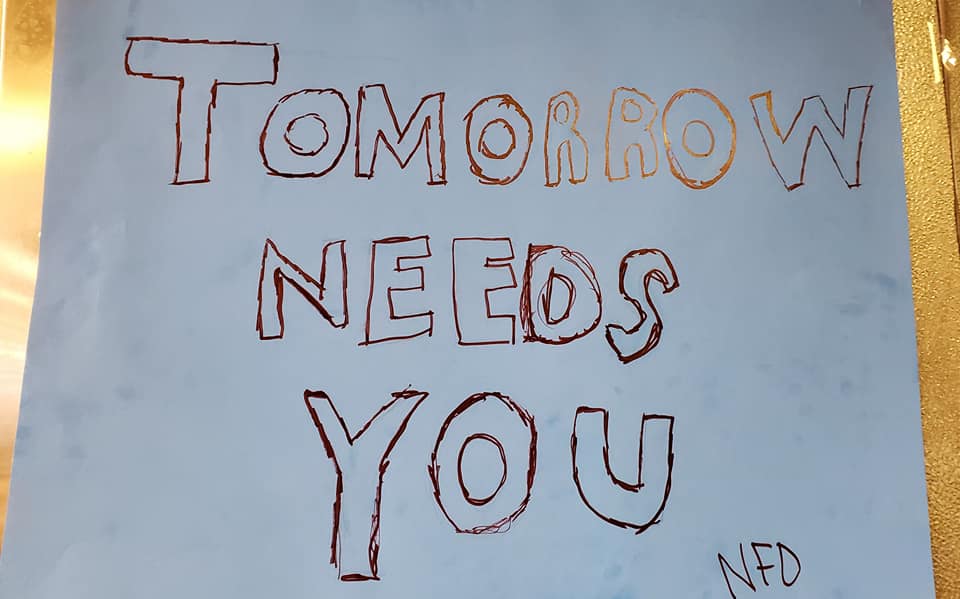 TOMORROW
NEEDS
YOU
NFD